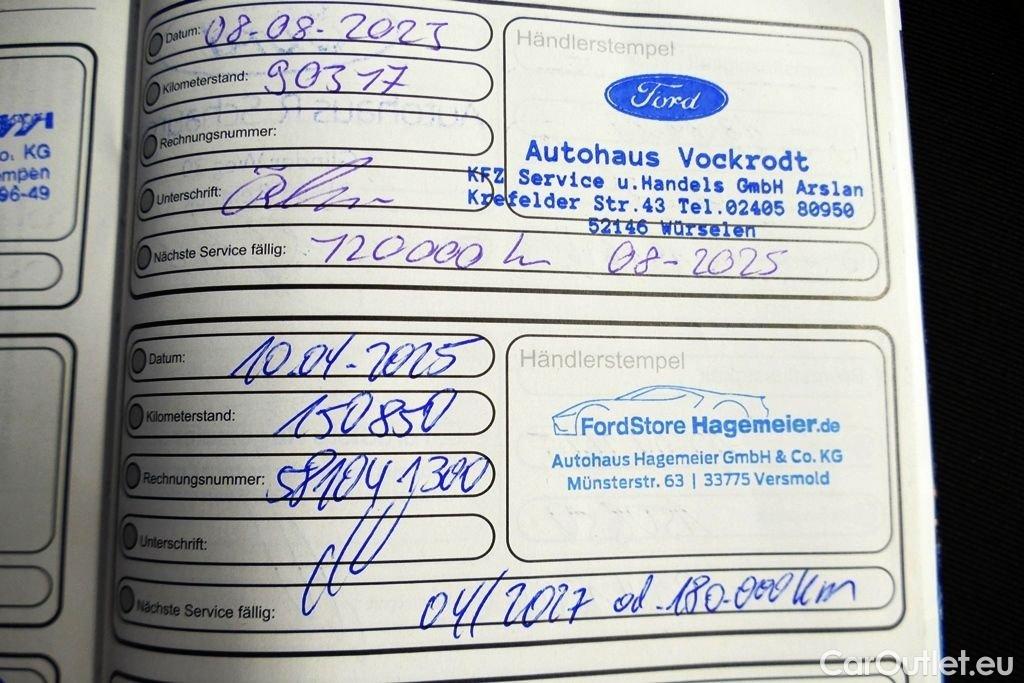 o. KG
mpen
96-49
Datum: 08-08-2023
Kilometerstand: 90317
Rechnungsnummer:
Unterschrift:
Nächste Service fällig: 120000 km 08-2025
Händlerstempel
Ford
Autohaus Vockrodt
KFZ Service u.Handels GmbH Arslan
Krefelder Str.43 Tel.02405 80950
52146 Würselen
Datum: 10.04-2025
Kilometerstand: 150850
Rechnungsnummer: 581041300
Unterschrift:
Nächste Service fällig: 04/2027 od. 180.000km
Händlerstempel
FordStore Hagemeier.de
Autohaus Hagemeier GmbH & Co. KG
Münsterstr. 63 | 33775 Versmold
CarOutlet.eu